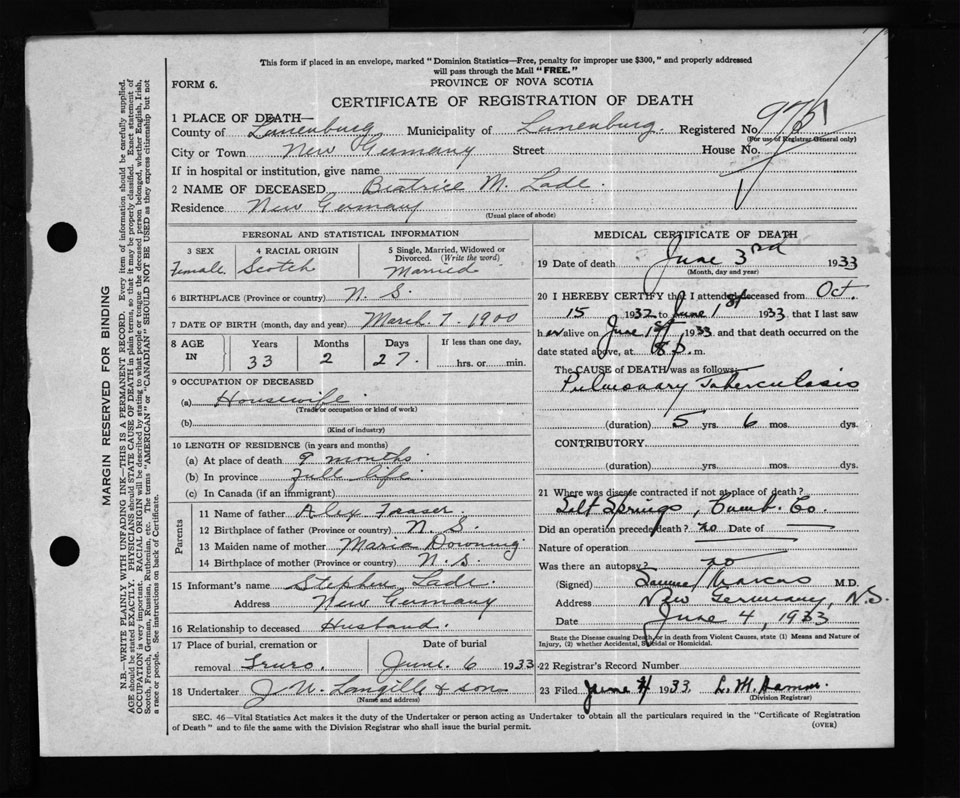 This form if placed in an envelope, marked "Dominion Statistics—Free, penalty for improper use $300," and properly addressed
will pass through the Mail "FREE."
FORM 6.
PROVINCE OF NOVA SCOTIA
CERTIFICATE OF REGISTRATION OF DEATH
1 PLACE OF DEATH—
County of Lunenburg Municipality of Lunenburg. Registered No.
(For use of Registrar General only)
City or Town New Germany Street House No.
If in hospital or institution, give name
2 NAME OF DECEASED Beatrice M. Lade.
Residence New Germany
(Usual place of abode)
PERSONAL AND STATISTICAL INFORMATION
3 SEX 4 RACIAL ORIGIN 5 Single, Married, Widowed or
Divorced. (Write the word)
Female Scotch Married
6 BIRTHPLACE (Province or country) N. S.
7 DATE OF BIRTH (month, day and year) March. 7. 1900
8 AGE IN Years Months Days If less than one day,
33 2 27. hrs. or min.
9 OCCUPATION OF DECEASED
(a) Housewife
(Trade or occupation or kind of work)
(b)
(Kind of industry)
10 LENGTH OF RESIDENCE (in years and months)
(a) At place of death 9 months
(b) In province Full life
(c) In Canada (if an immigrant)
Parents
11 Name of father Alex Fraser
12 Birthplace of father (Province or country) N. S.
13 Maiden name of mother Maria Downing
14 Birthplace of mother (Province or country) N. S.
15 Informant's name Stephen Lade.
Address New Germany
16 Relationship to deceased Husband.
17 Place of burial, cremation or Date of burial
removal Truro. June. 6 1933
18 Undertaker J. W. Langille & son
(Name and address)
MEDICAL CERTIFICATE OF DEATH
19 Date of death June 3rd 1933
(Month, day and year)
20 I HEREBY CERTIFY that I attended deceased from Oct.
15 1932 to June 1st 1933, that I last saw
her alive on June 1st 1933 and that death occurred on the
date stated above, at 8 p. m.
The CAUSE OF DEATH was as follows:
Pulmonary Tuberculosis
(duration) 5 yrs. 6 mos. dys.
CONTRIBUTORY
(duration) yrs. mos. dys.
21 Where was disease contracted if not at place of death?
Salt Springs, Cumb. Co.
Did an operation precede death? no Date of
Nature of operation
Was there an autopsy? no
(Signed) Samuel Marcus M.D.
Address New Germany, N.S.
Date June 4, 1933
State the Disease causing Death, or in death from Violent Causes, state (1) Means and Nature of
Injury, (2) whether Accidental, Suicidal or Homicidal.
22 Registrar's Record Number
23 Filed June 4 1933 L. M.
(Division Registrar)
SEC. 46—Vital Statistics Act makes it the duty of the Undertaker or person acting as Undertaker to obtain all the particulars required in the "Certificate of Registration
of Death" and to file the same with the Division Registrar who shall issue the burial permit. (OVER)
MARGIN RESERVED FOR BINDING
N.B.—WRITE PLAINLY WITH UNFADING INK—THIS IS A PERMANENT RECORD. Every item of information should be carefully supplied.
AGE should be stated EXACTLY. PHYSICIANS should STATE CAUSE OF DEATH in plain terms, so that it may be properly classified. Exact statement of
OCCUPATION is very important. RACIAL ORIGIN will be described by stating to what people or tongue the deceased person belonged, whether English, Irish,
Scotch, French, German, Russian, Ruthenian, etc. The terms "AMERICAN" or "CANADIAN" SHOULD NOT BE USED as they express citizenship but not
a race or people. See instructions on back of Certificate.